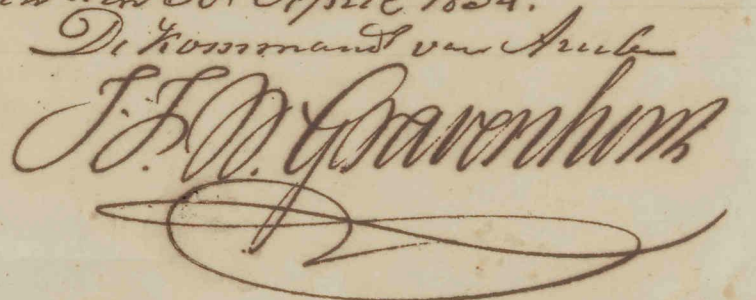 den 30 April 1834.
De Kommandt van Aruba
J. F. W. Gravenhorst